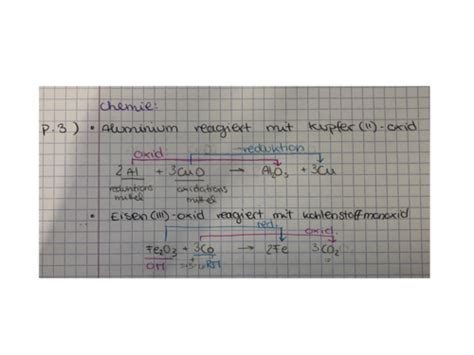 Chemie:
P.3) • Aluminium reagiert mit Kupfer(II)-oxid
oxid reduktion
2 Al + 3CuO → Al2O3 + 3Cu
reduktions oxidations
mittel mittel
• Eisen(III)-oxid reagiert mit Kohlenstoffmonoxid
red.
oxid.
Fe2O3 + 3CO → 2Fe 3CO2
OM RM